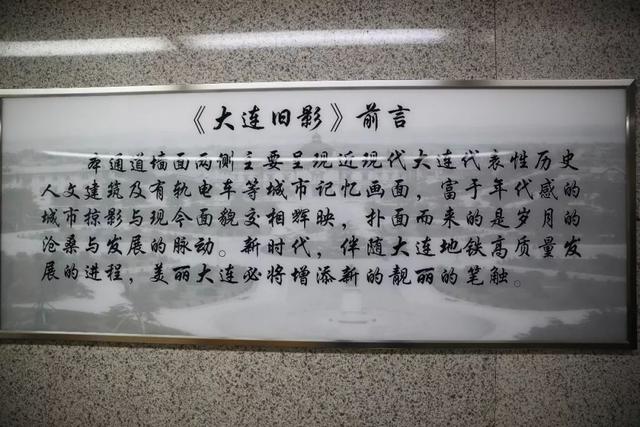 《大连旧影》前言
本通道墙面两侧主要呈现近现代大连代表性历史
人文建筑及有轨电车等城市记忆画面，富于年代感的
城市掠影与现今面貌交相辉映，扑面而来的是岁月的
沧桑与发展的脉动。新时代，伴随大连地铁高质量发
展的进程，美丽大连必将增添新的靓丽的笔触。